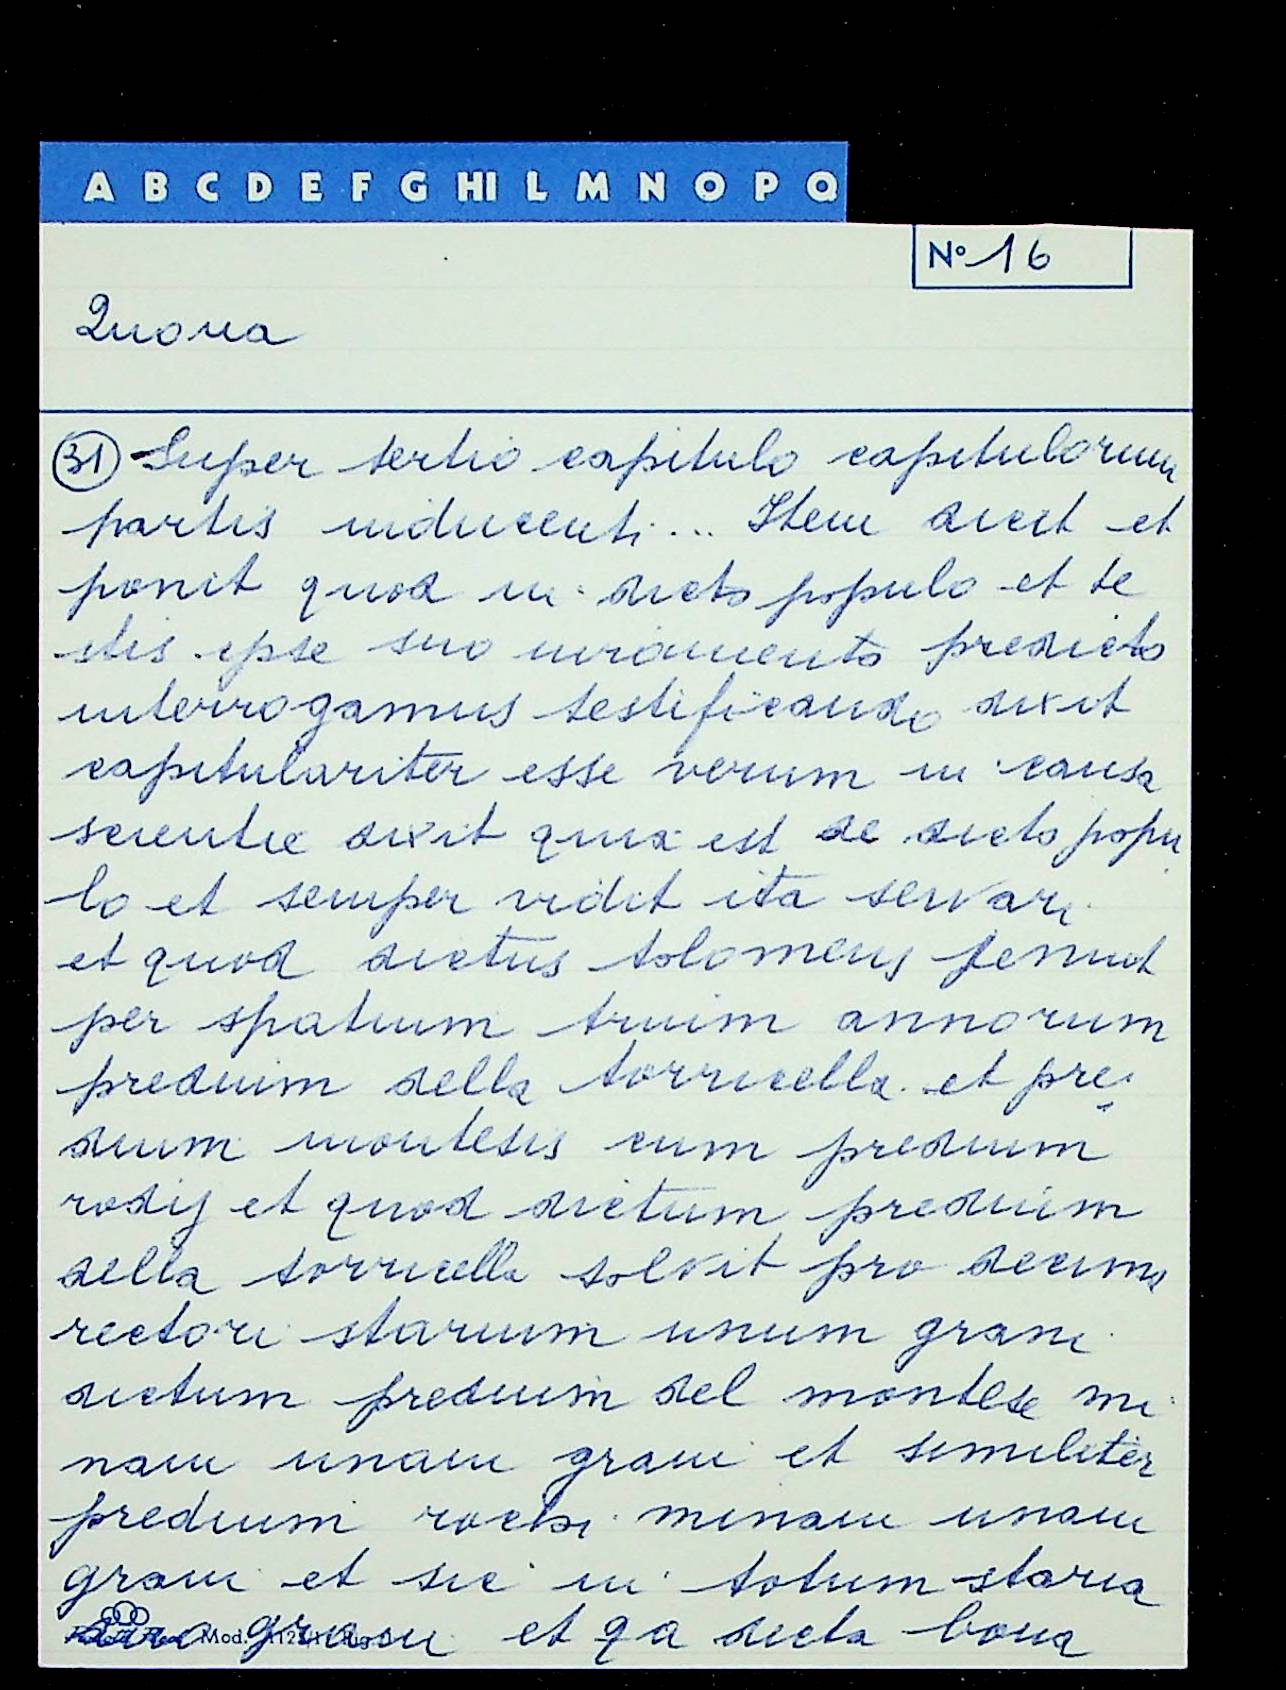 A B C D E F G HI L M N O P Q
N° 16
Quona
31 Super tertio capitulo capitulorum
partis inducenti... Item dicit et
ponit quod in dicto populo et te
stis ipse suo iuramento predicto
interrogamus testificando dixit
capitulariter esse verum in causa
scientie dixit quia est de dicto popu
lo et semper vidit ita servari
et quod dictus tolomeus tenuit
per spatium trium annorum
predium della torricella et pre
dium montesis cum predium
rodij et quod dictum predium
della torricella solvit pro decima
rectori starium unum grani
dictum predium del montese mi
nam unam grani et similiter
predium rochi minam unam
grani et sic in totum staria
duo grani et qa dicta bona
Mod.